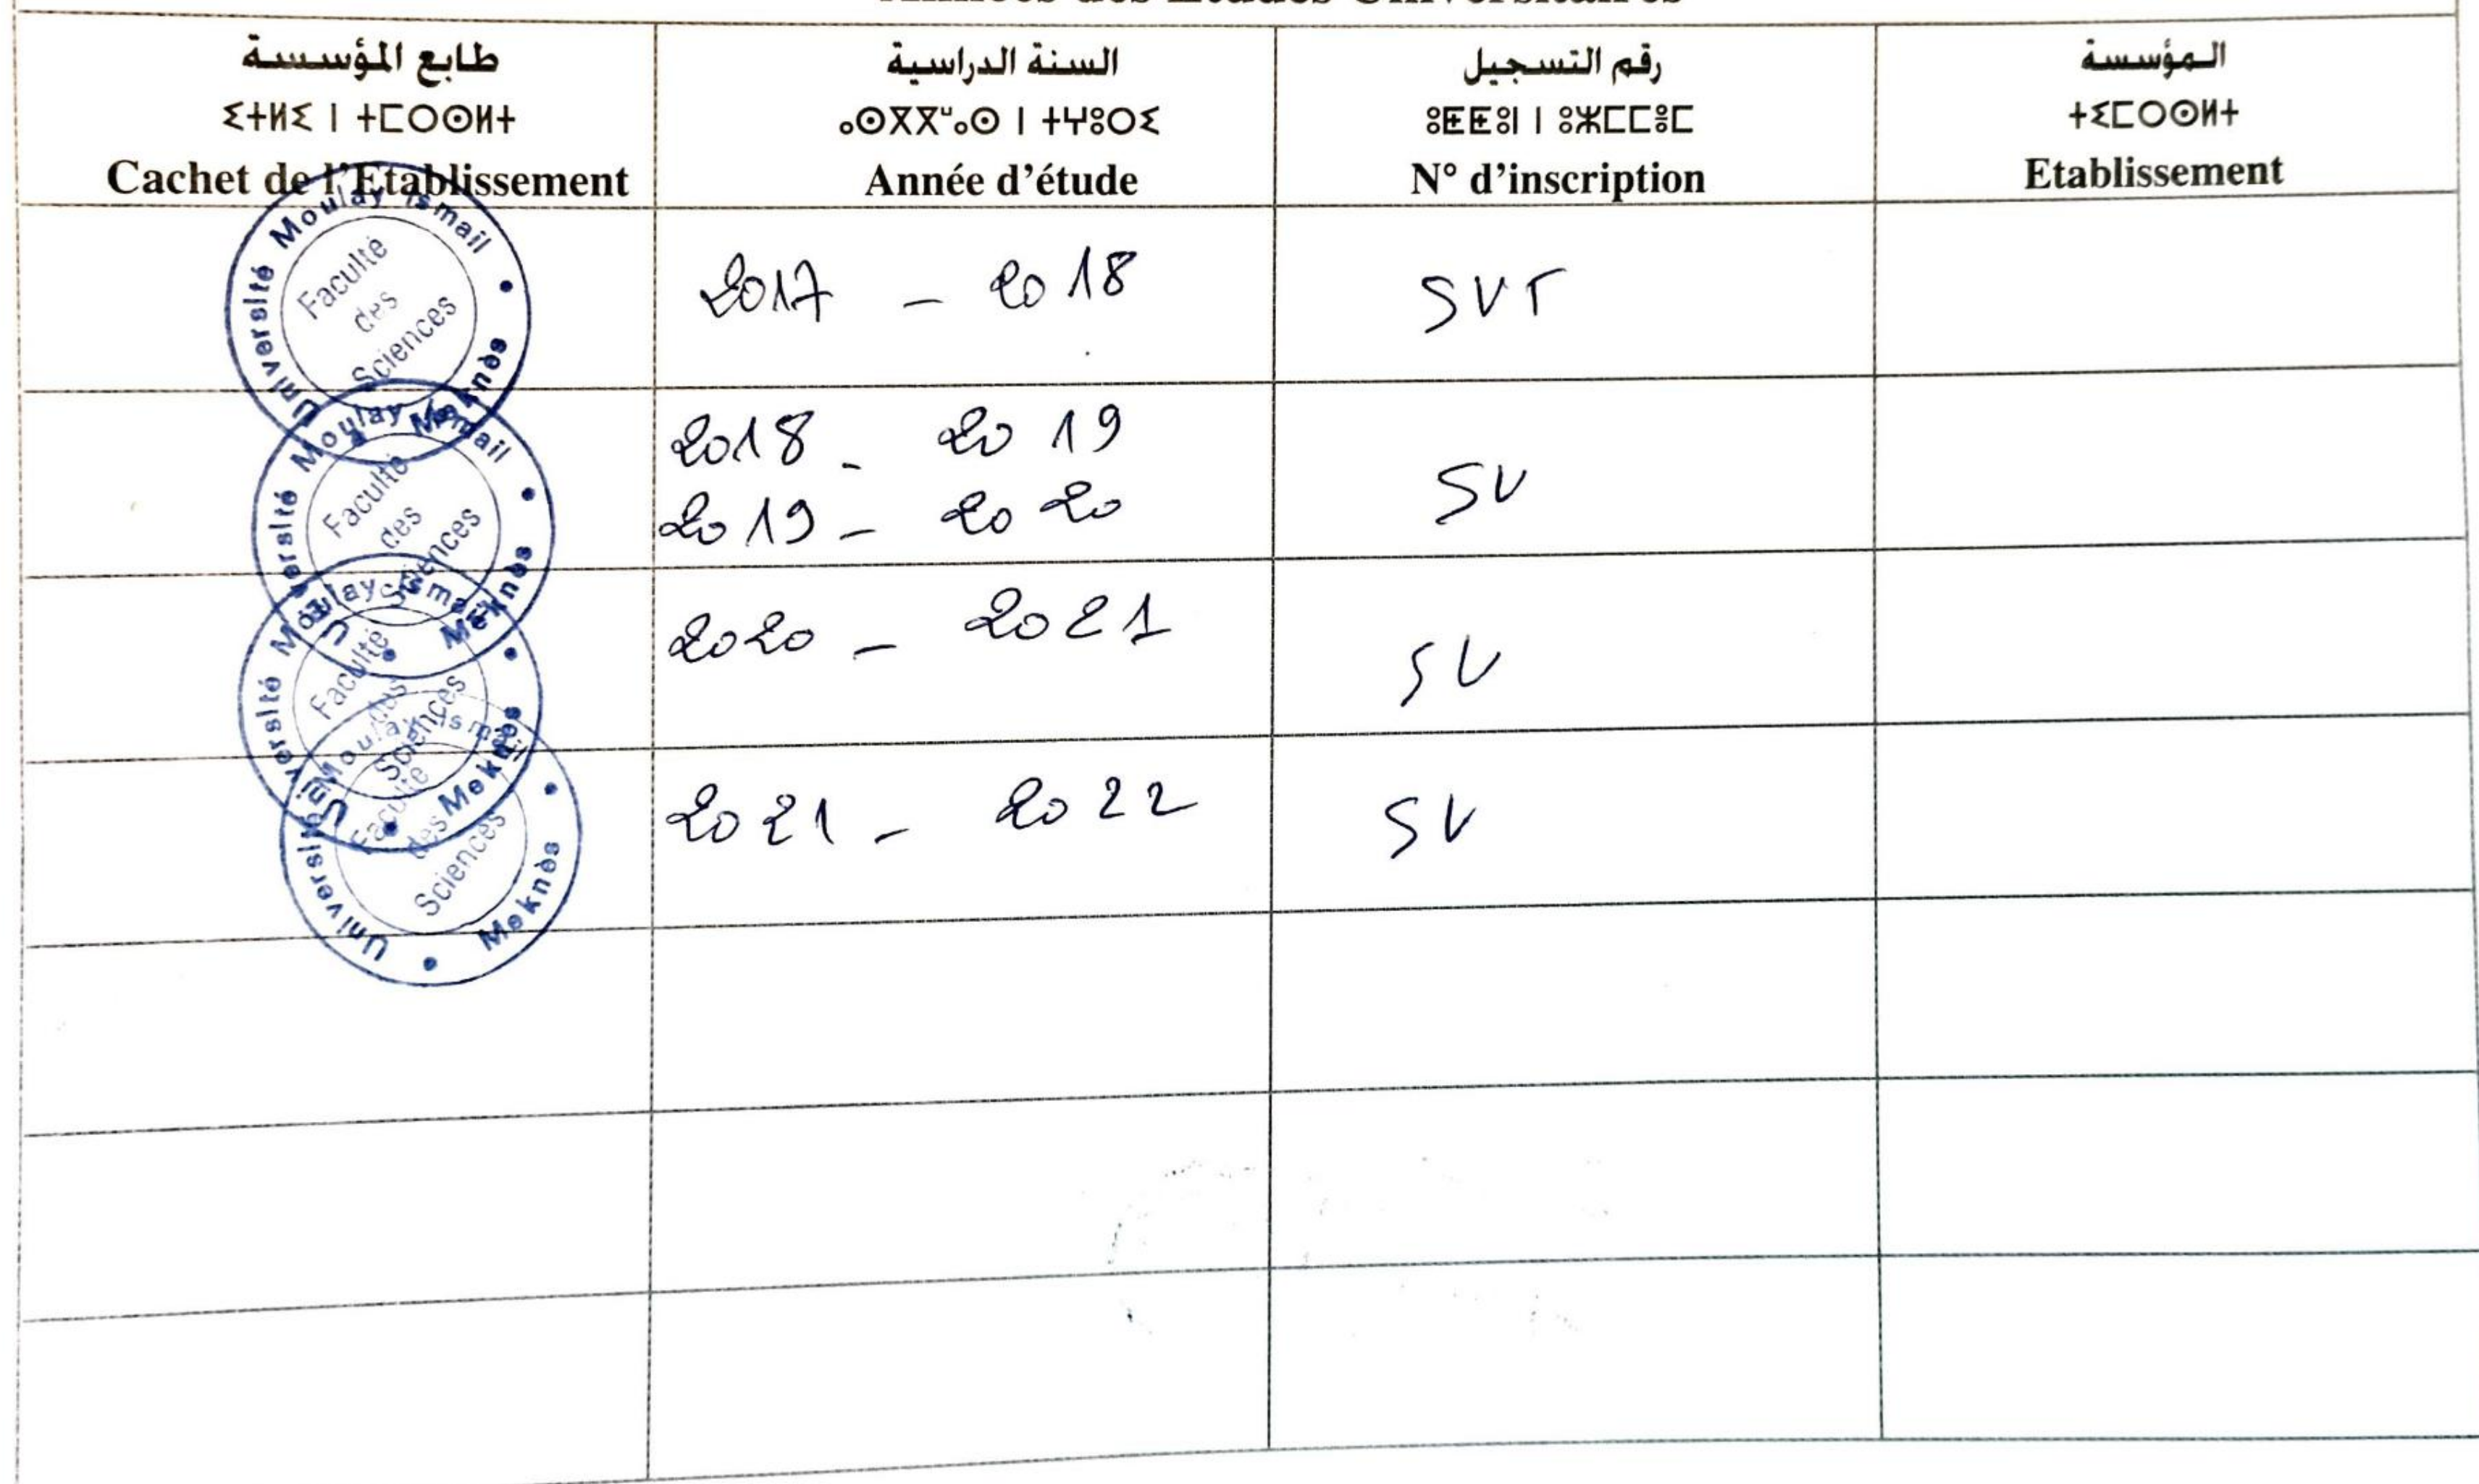 Années des Etudes Universitaires
طابع المؤسسة
ⵉⵜⵍⵉ ⵏ ⵜⵎⵔⵙⵍⵜ
Cachet de l'Etablissement
السنة الدراسية
ⴰⵙⴳⴳⵯⴰⵙ ⵏ ⵜⵖⵓⵔⵉ
Année d'étude
رقم التسجيل
ⵓⵟⵟⵓⵏ ⵏ ⵓⵣⵎⵎⴻⵎ
N° d'inscription
المؤسسة
ⵜⵉⵎⵔⵙⵍⵜ
Etablissement
Université Moulay Ismail • Meknès •
Faculté
des
Sciences
2017 - 2018
SVT
Université Moulay Ismail • Meknès •
Faculté
des
Sciences
2018 - 2019
2019 - 2020
SV
Université Moulay Ismail • Meknès •
Faculté
des
Sciences
2020 - 2021
SV
Université Moulay Ismail • Meknès •
Faculté
des
Sciences
2021 - 2022
SV